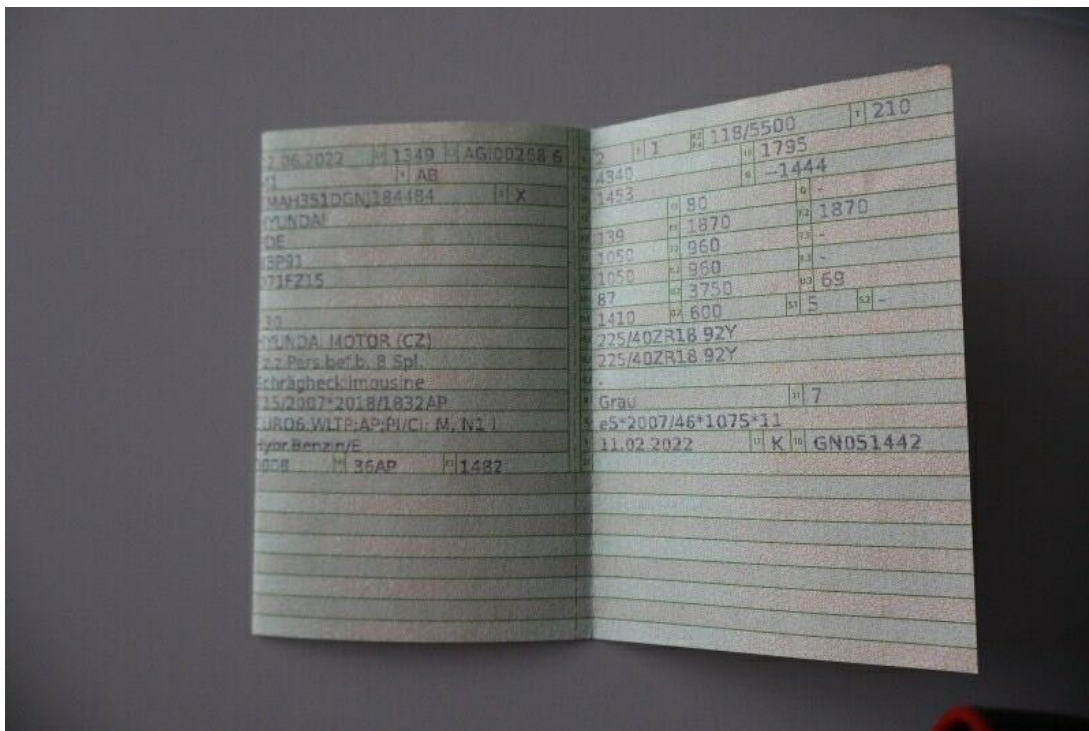 .06.2022 1349 AGI00258 6
AB
MAH351DGNJ184484 X
HYUNDAI
PDE
B3P91
HYUNDAI MOTOR (CZ)
Fz.z.Pers.bef.b. 8 Spl.
Schräghecklimousine
715/2007*2018/1832AP
EURO6,WLTP;AP;PI/CI; M, N1 I
Hybr.Benzin/E
0008 36AP 1482
2 1 P.2 P.4 118/5500 T 210
4340 1795
1453 G --1444
80 -
139 1870 F.2 1870
1050 960 7.3 -
1050 960 8.3 -
87 3750 U.3 69
1410 600 S.1 5 S.2 -
225/40ZR18 92Y
225/40ZR18 92Y
-
Grau 11 7
e5*2007/46*1075*11
11.02.2022 17 K 16 GN051442